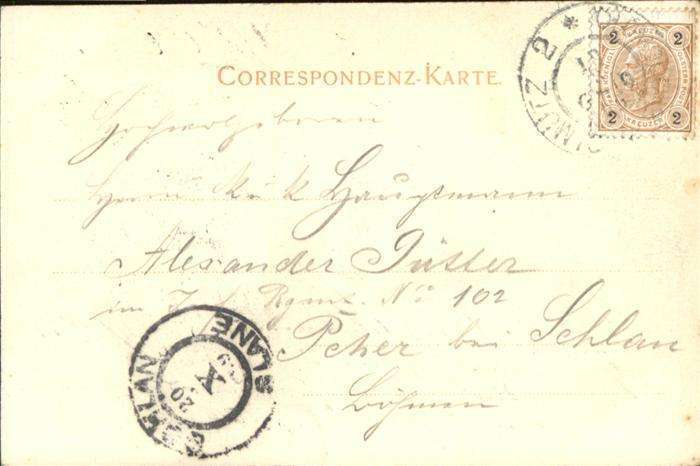 CORRESPONDENZ-KARTE.
2 2
2 2
KREUZER
OLMÜTZ 2 *
Hochwolgeboren
Herrn k. u. k. Hauptmann
Alexander
im Rgmt. No 102
Pcher bei Schlan
Böhmen
SCHLAN
SLANÉ
20